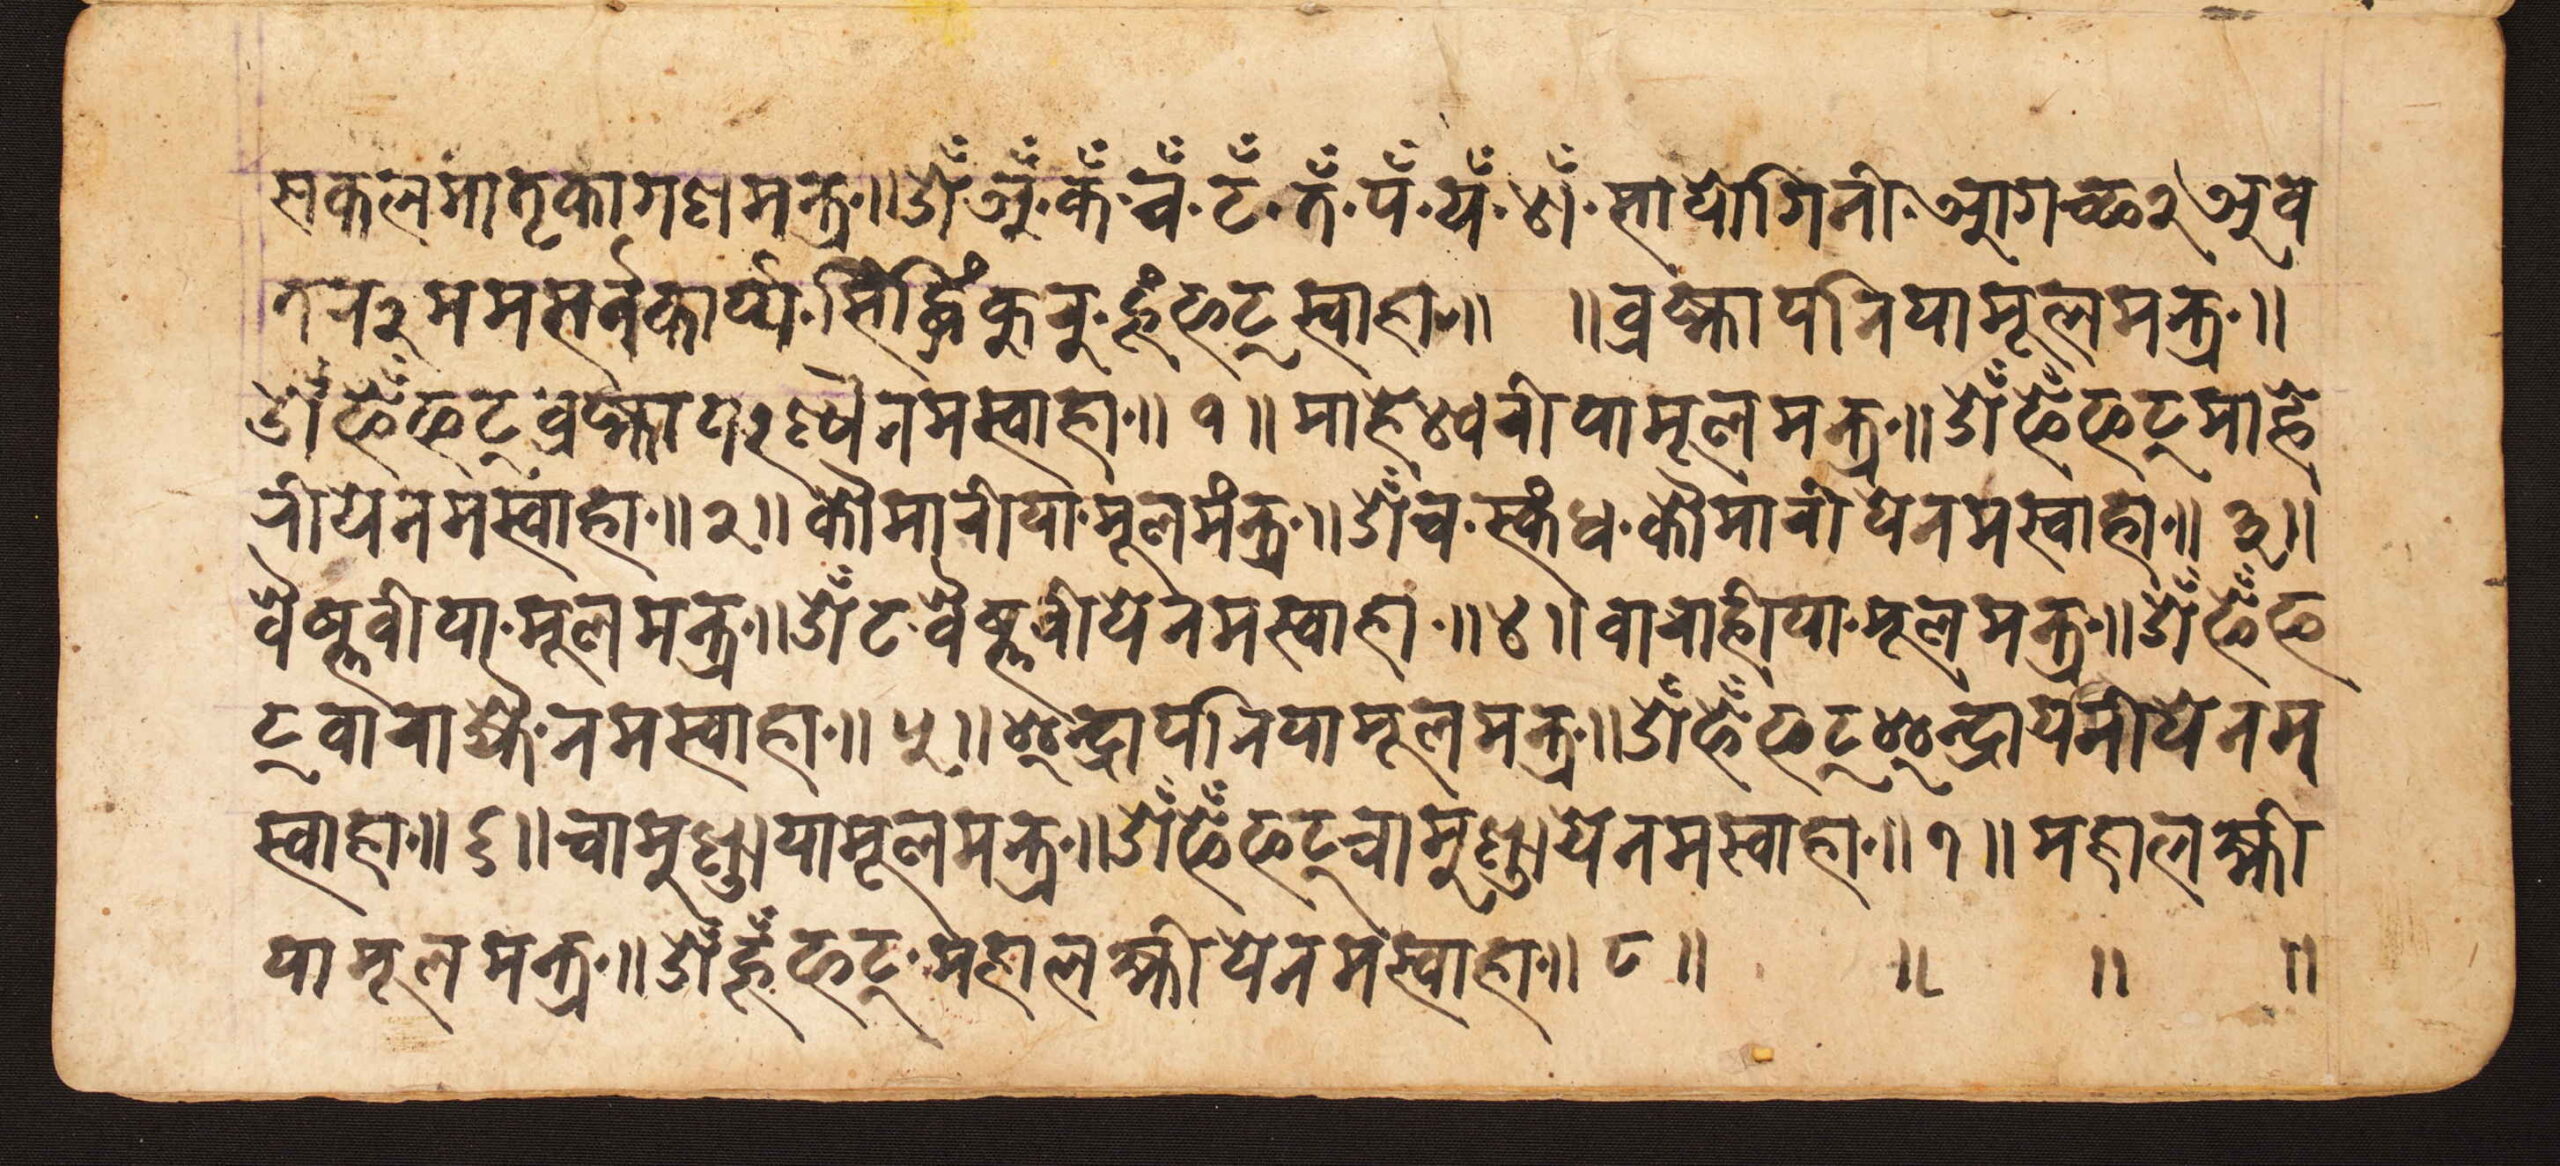 सकलमातृकागणमन्त्रः॥ॐ अँ कँ चँ टँ तँ पँ यँ शाँ सायोगिनी आगच्छ२अव
तर२ममसर्वकार्य्य सिद्धिंकुरु हूंफट्स्वाहा॥ ॥व्रह्मायनियामूलमन्त्रः॥
ॐ ह्रूँफट्व्रह्माय२ण्यैनमस्वाहाः॥१॥माहेश्वरीयामूलमन्त्रः॥ॐ ह्रूँफट्माहे
रीयेनमस्वाहाः॥२॥कौमारीयामूलमंन्त्रः॥ॐ च स्कंध कौमारीयेनमस्वाहाः॥३॥
वैष्णवीयामूलमन्त्रः॥ॐ ट वैष्णवीयेनमस्वाहाः॥४॥वाराहीयामूलमन्त्रः॥ॐ ह्रूँफ
ट्वाराह्यैनमस्वाहाः॥५॥इन्द्रायनियामूलमन्त्रः॥ॐ ह्रूँफट्इन्द्रायनीयेनम
स्वाहाः॥६॥चामुण्डायामूलमन्त्रः॥ॐ ह्रूँफट्चामुण्डायेनमस्वाहाः॥७॥महालक्ष्मी
यामूलमन्त्रः॥ॐ ह्रूँफट् महालक्ष्मीयेनमस्वाहाः॥८॥ ॥ ॥ ॥